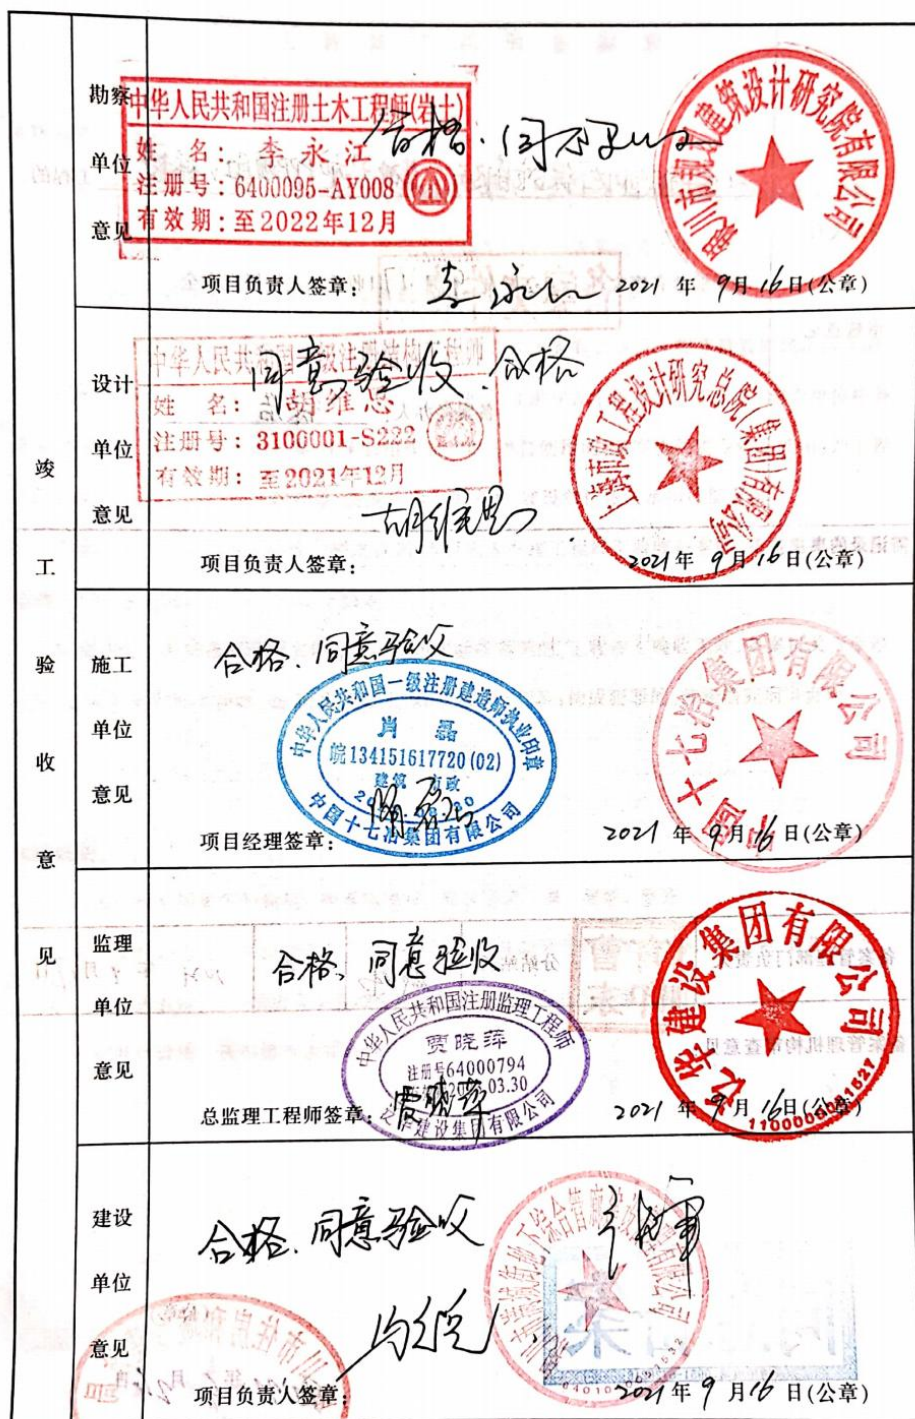 竣工验收意见
勘察单位意见
中华人民共和国注册土木工程师(岩土)
姓 名: 李永江
注册号: 6400095-AY008
有效期: 至2022年12月
合格.同意验收
银川市规划建筑设计研究院有限公司
项目负责人签章: 李永江 2021年9月16日(公章)
设计单位意见
同意验收.合格
姓 名: 胡维思
注册号: 3100001-S222
有效期: 至2021年12月
上海市政工程设计研究总院(集团)有限公司
胡维思
项目负责人签章: 2021年9月16日(公章)
施工单位意见
合格.同意验收
中华人民共和国一级注册建造师执业印章
肖磊
皖134151617720(02)
建筑 市政
中国十七冶集团有限公司
中国十七冶集团有限公司
项目经理签章: 2021年9月16日(公章)
监理单位意见
合格、同意验收
中华人民共和国注册监理工程师
贾晓萍
注册号64000794
03.30
泛华建设集团有限公司
泛华建设集团有限公司
1100000081527
总监理工程师签章: 贾晓萍 2021年9月16日(公章)
建设单位意见
合格.同意验收
项目负责人签章: 2021年9月16日(公章)